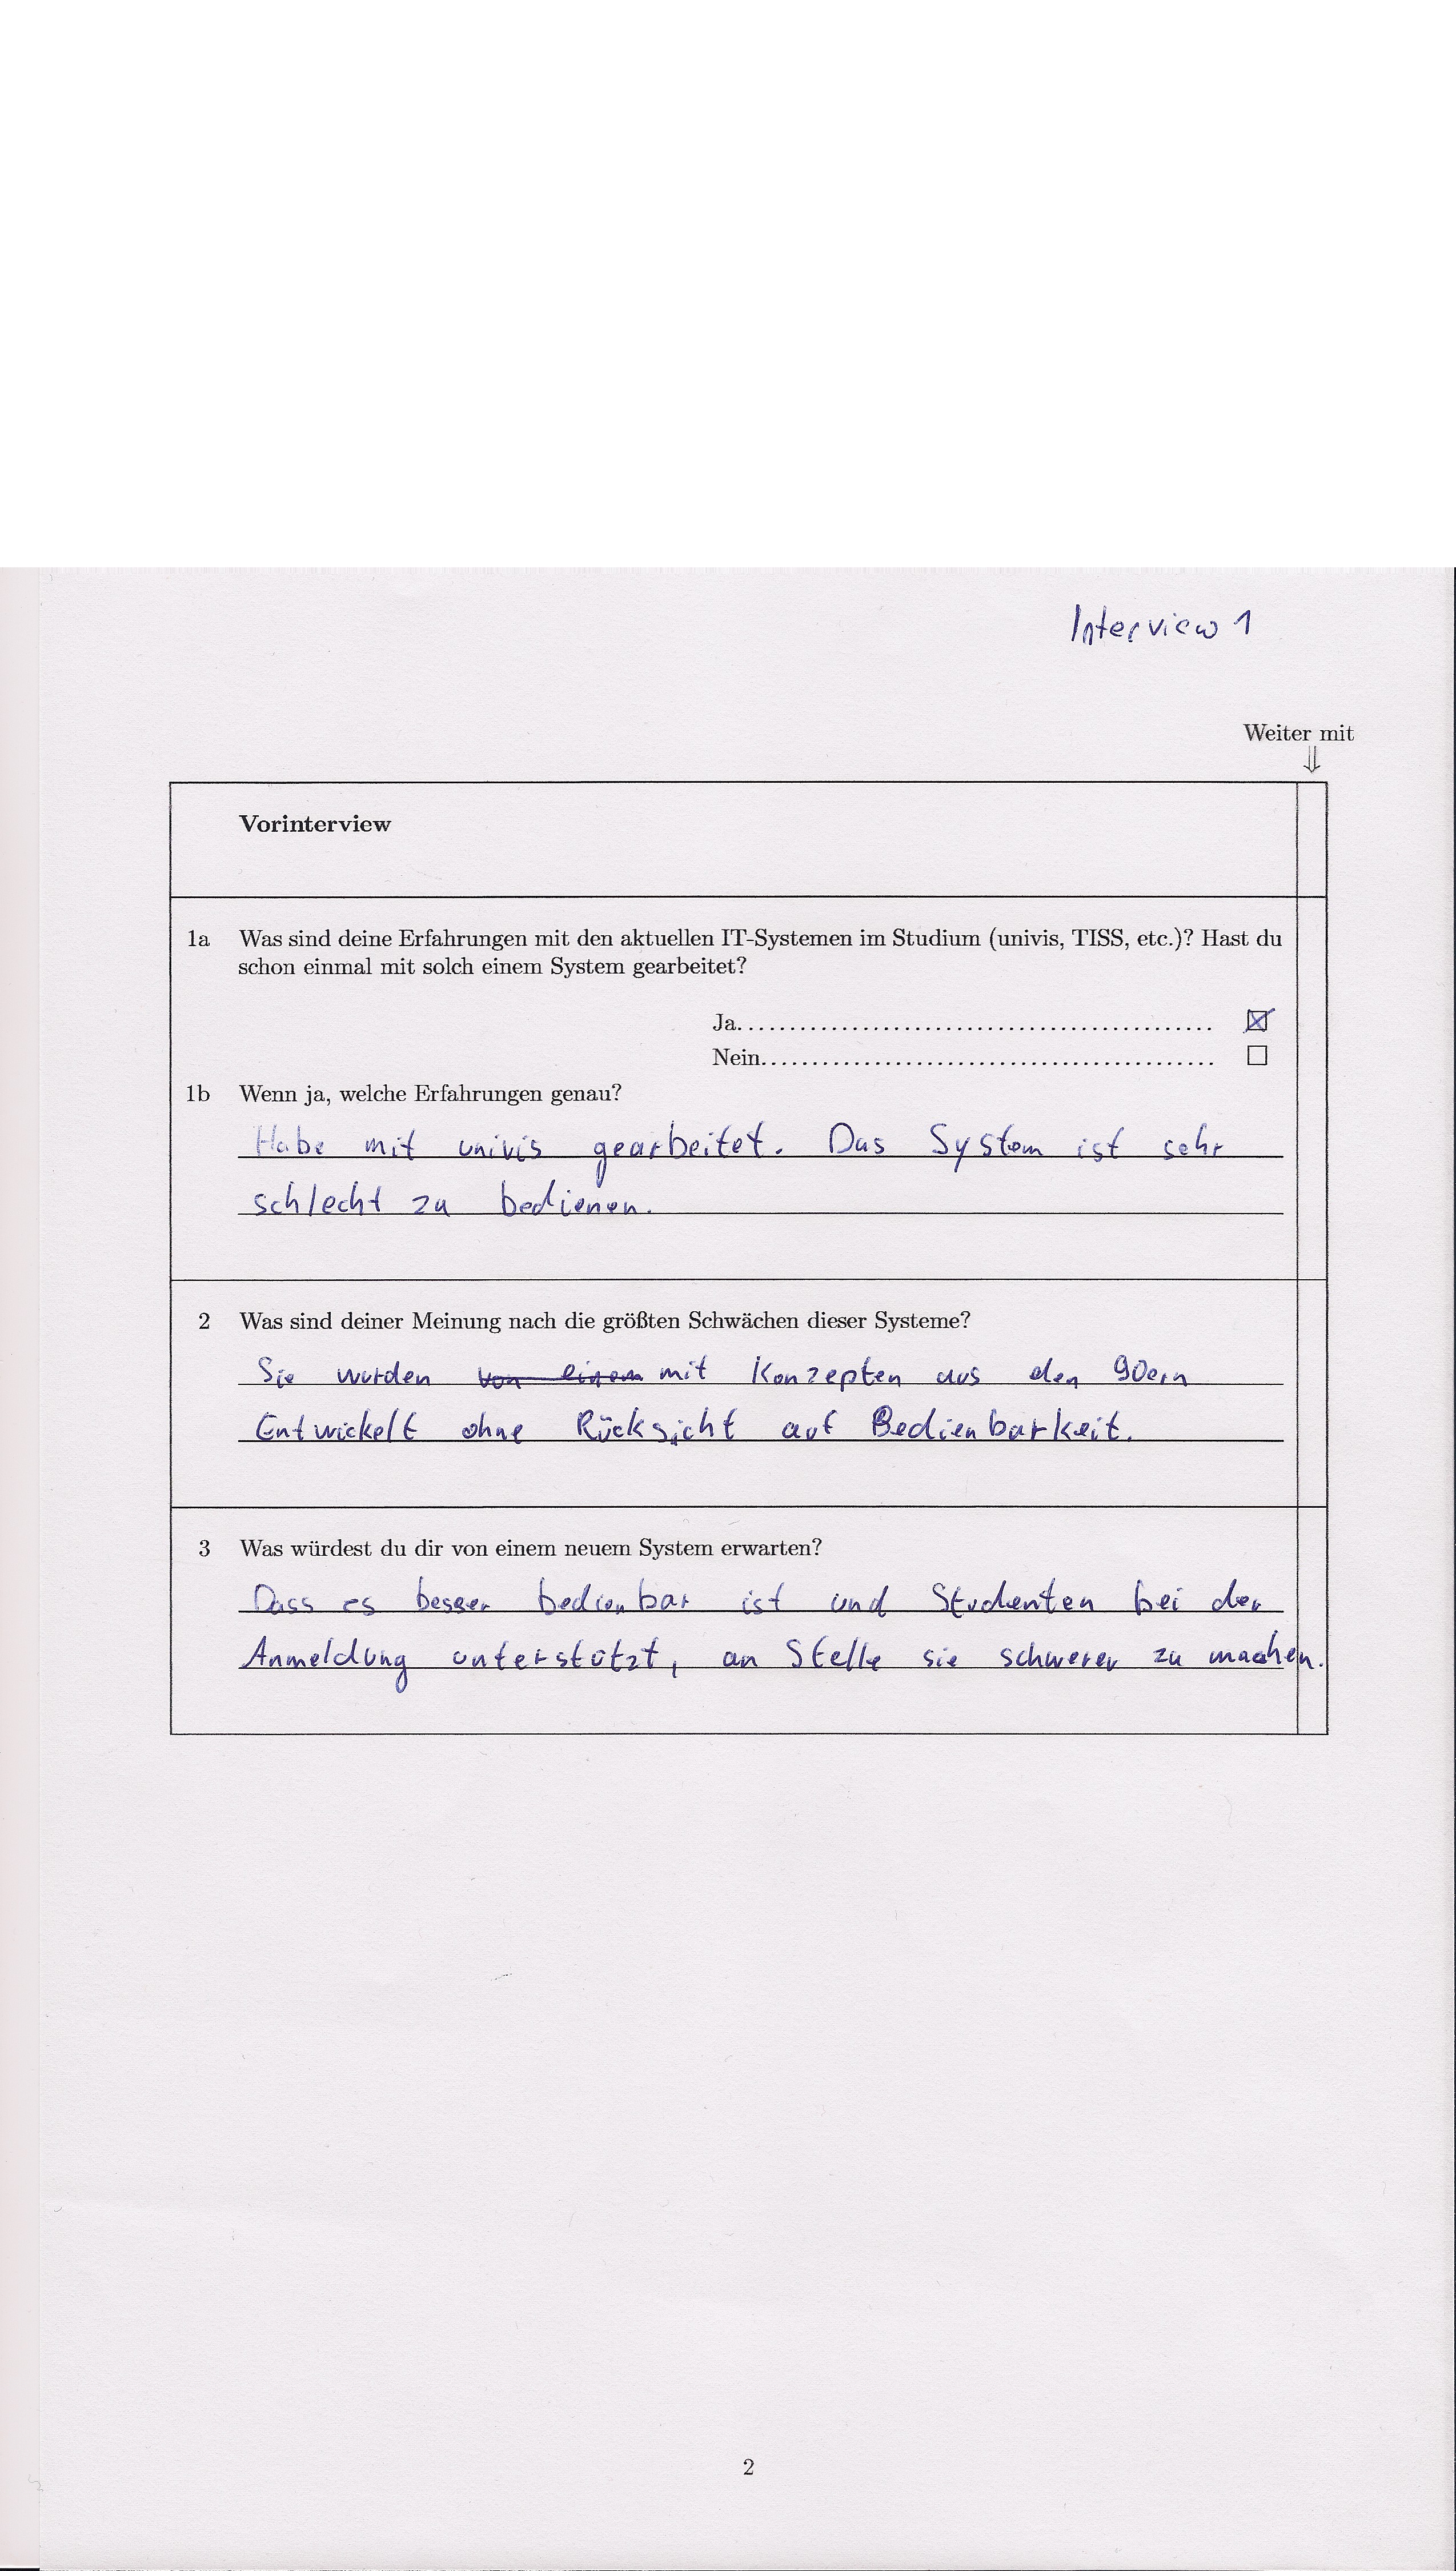 Interview 1
Weiter mit
⇓
Vorinterview
1a Was sind deine Erfahrungen mit den aktuellen IT-Systemen im Studium (univis, TISS, etc.)? Hast du
schon einmal mit solch einem System gearbeitet?
Ja............................................. ☒
Nein........................................... ☐
1b Wenn ja, welche Erfahrungen genau?
Habe mit univis gearbeitet. Das System ist sehr
schlecht zu bedienen.
2 Was sind deiner Meinung nach die größten Schwächen dieser Systeme?
Sie wurden von einem mit Konzepten aus den 90ern
Entwickelt ohne Rücksicht auf Bedienbarkeit.
3 Was würdest du dir von einem neuem System erwarten?
Dass es besser bedienbar ist und Studenten bei der
Anmeldung unterstützt, an Stelle sie schwerer zu machen.
2